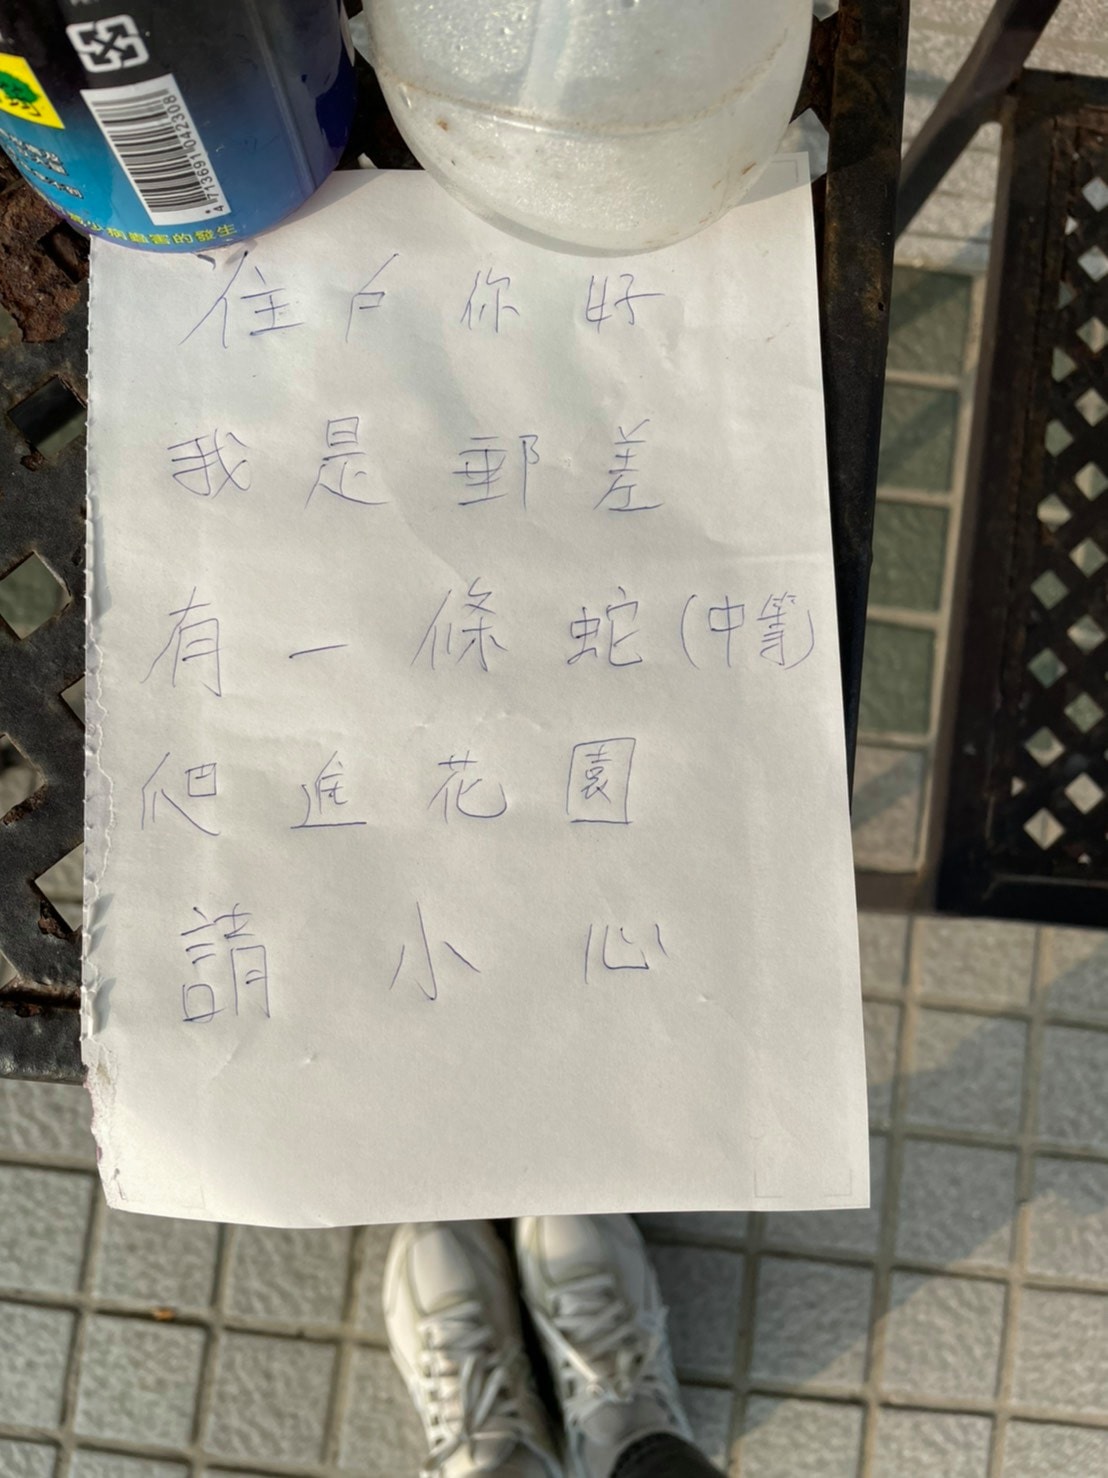 4713691042308
減少病蟲害的發生
住戶你好
我是郵差
有一條蛇(中等)
爬進花園
請小心